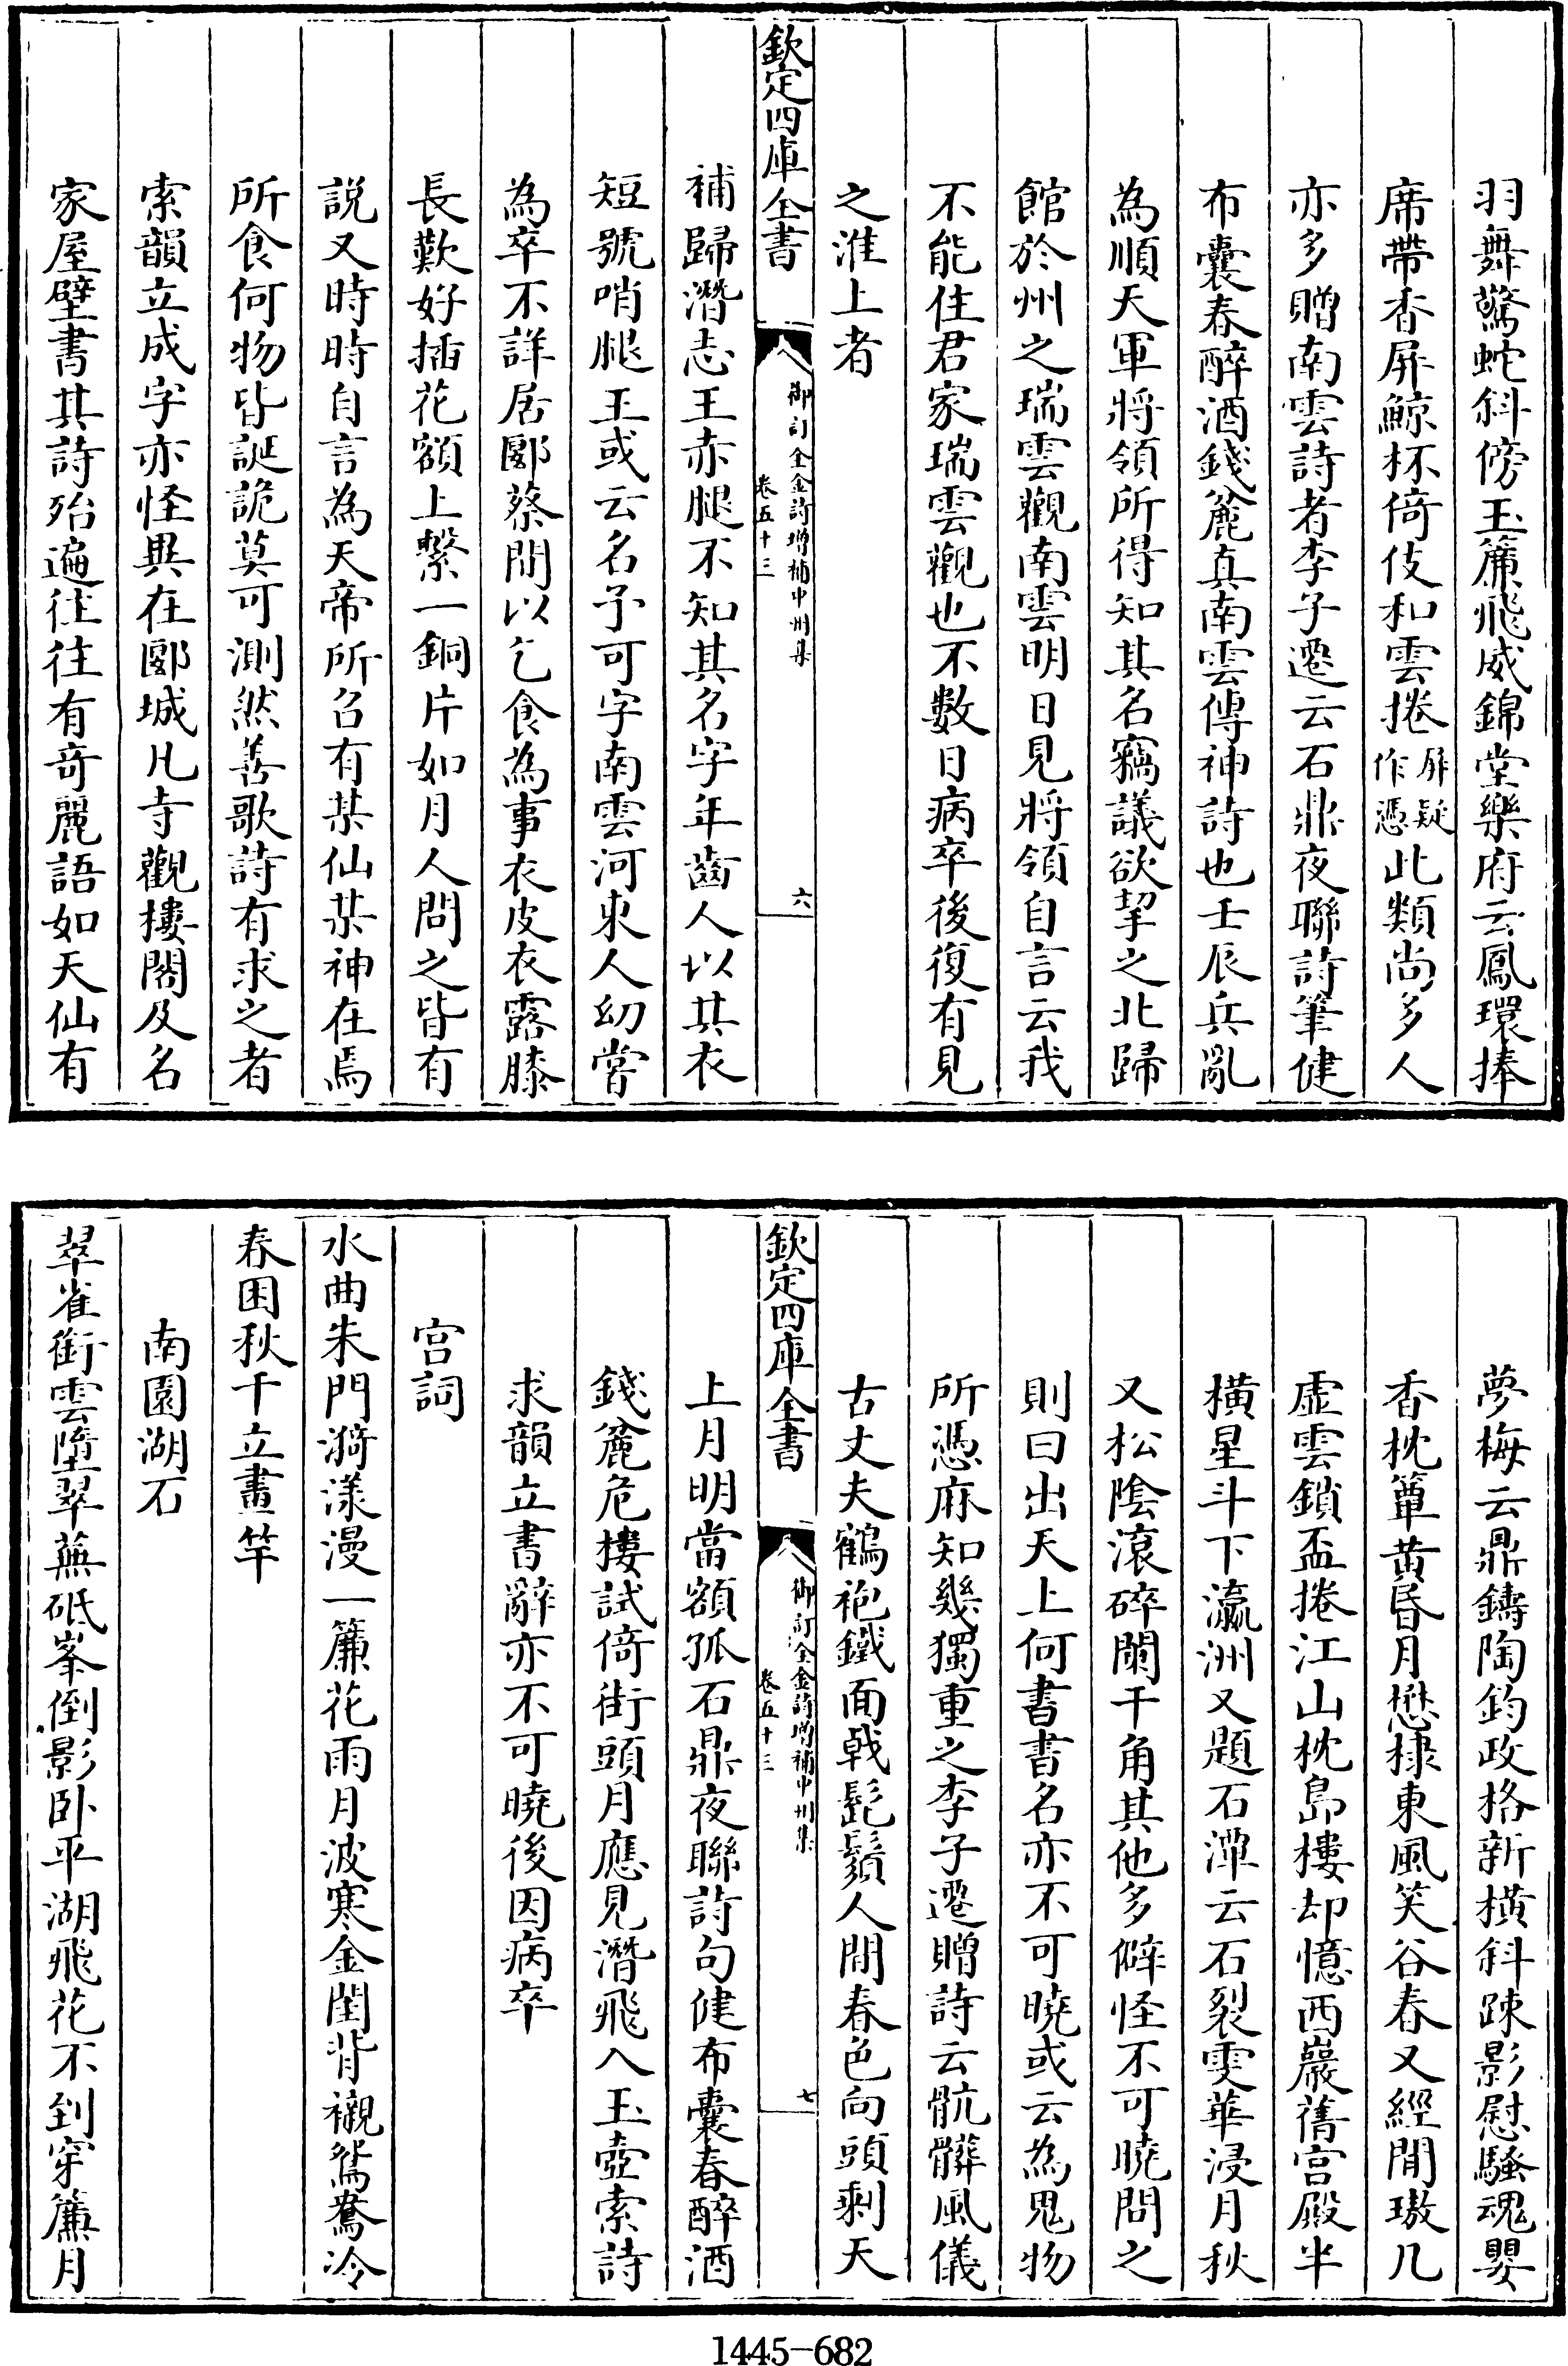 羽舞驚蛇斜傍玉簾飛威錦堂樂府云鳳環捧
席帶香屏鯨杯倚伎和雲捲屏疑作憑此類尚多人
亦多贈南雲詩者李子遷云石鼎夜聯詩筆健
布囊春醉酒錢麄真南雲傳神詩也壬辰兵亂
為順天軍將領所得知其名竊議欲挈之北歸
館於州之瑞雲觀南雲明日見將領自言云我
不能住君家瑞雲觀也不數日病卒後復有見
之淮上者
欽定四庫全書
御訂全金詩增補中州集
卷五十三
六
補歸潛志王赤腿不知其名字年齒人以其衣
短號哨腿王或云名予可字南雲河東人幼嘗
為卒不詳居郾蔡間以乞食為事衣皮衣露膝
長歎好插花額上繫一銅片如月人問之皆有
說又時時自言為天帝所召有某仙某神在焉
所食何物皆誕詭莫可測然善歌詩有求之者
索韻立成字亦怪異在郾城凡寺觀樓閣及名
家屋壁書其詩殆遍往往有奇麗語如天仙有
夢梅云鼎鑄陶鈞政格新橫斜疎影慰騷魂嬰
香枕簟黃昏月懋棣東風笑谷春又經閒璈几
虛雲鎖盃捲江山枕島樓却憶西巖舊宮殿半
橫星斗下瀛洲又題石潭云石裂雯華浸月秋
又松陰滾碎闌干角其他多僻怪不可曉問之
則曰出天上何書書名亦不可曉或云為鬼物
所憑麻知幾獨重之李子遷贈詩云骯髒風儀
古丈夫鶴袍鐵面戟髭鬚人間春色向頭剩天
欽定四庫全書
御訂全金詩增補中州集
卷五十三
七
上月明當額孤石鼎夜聯詩句健布囊春醉酒
錢麄危樓試倚街頭月應見潛飛入玉壺索詩
求韻立書辭亦不可曉後因病卒
宮詞
水曲朱門漪漾漫一簾花雨月波寒金閨背襯鴛鴦冷
春困秋千立畫竿
南園湖石
翠雀銜雲墮翠蕪砥峯倒影卧平湖飛花不到穿簾月
1445-682